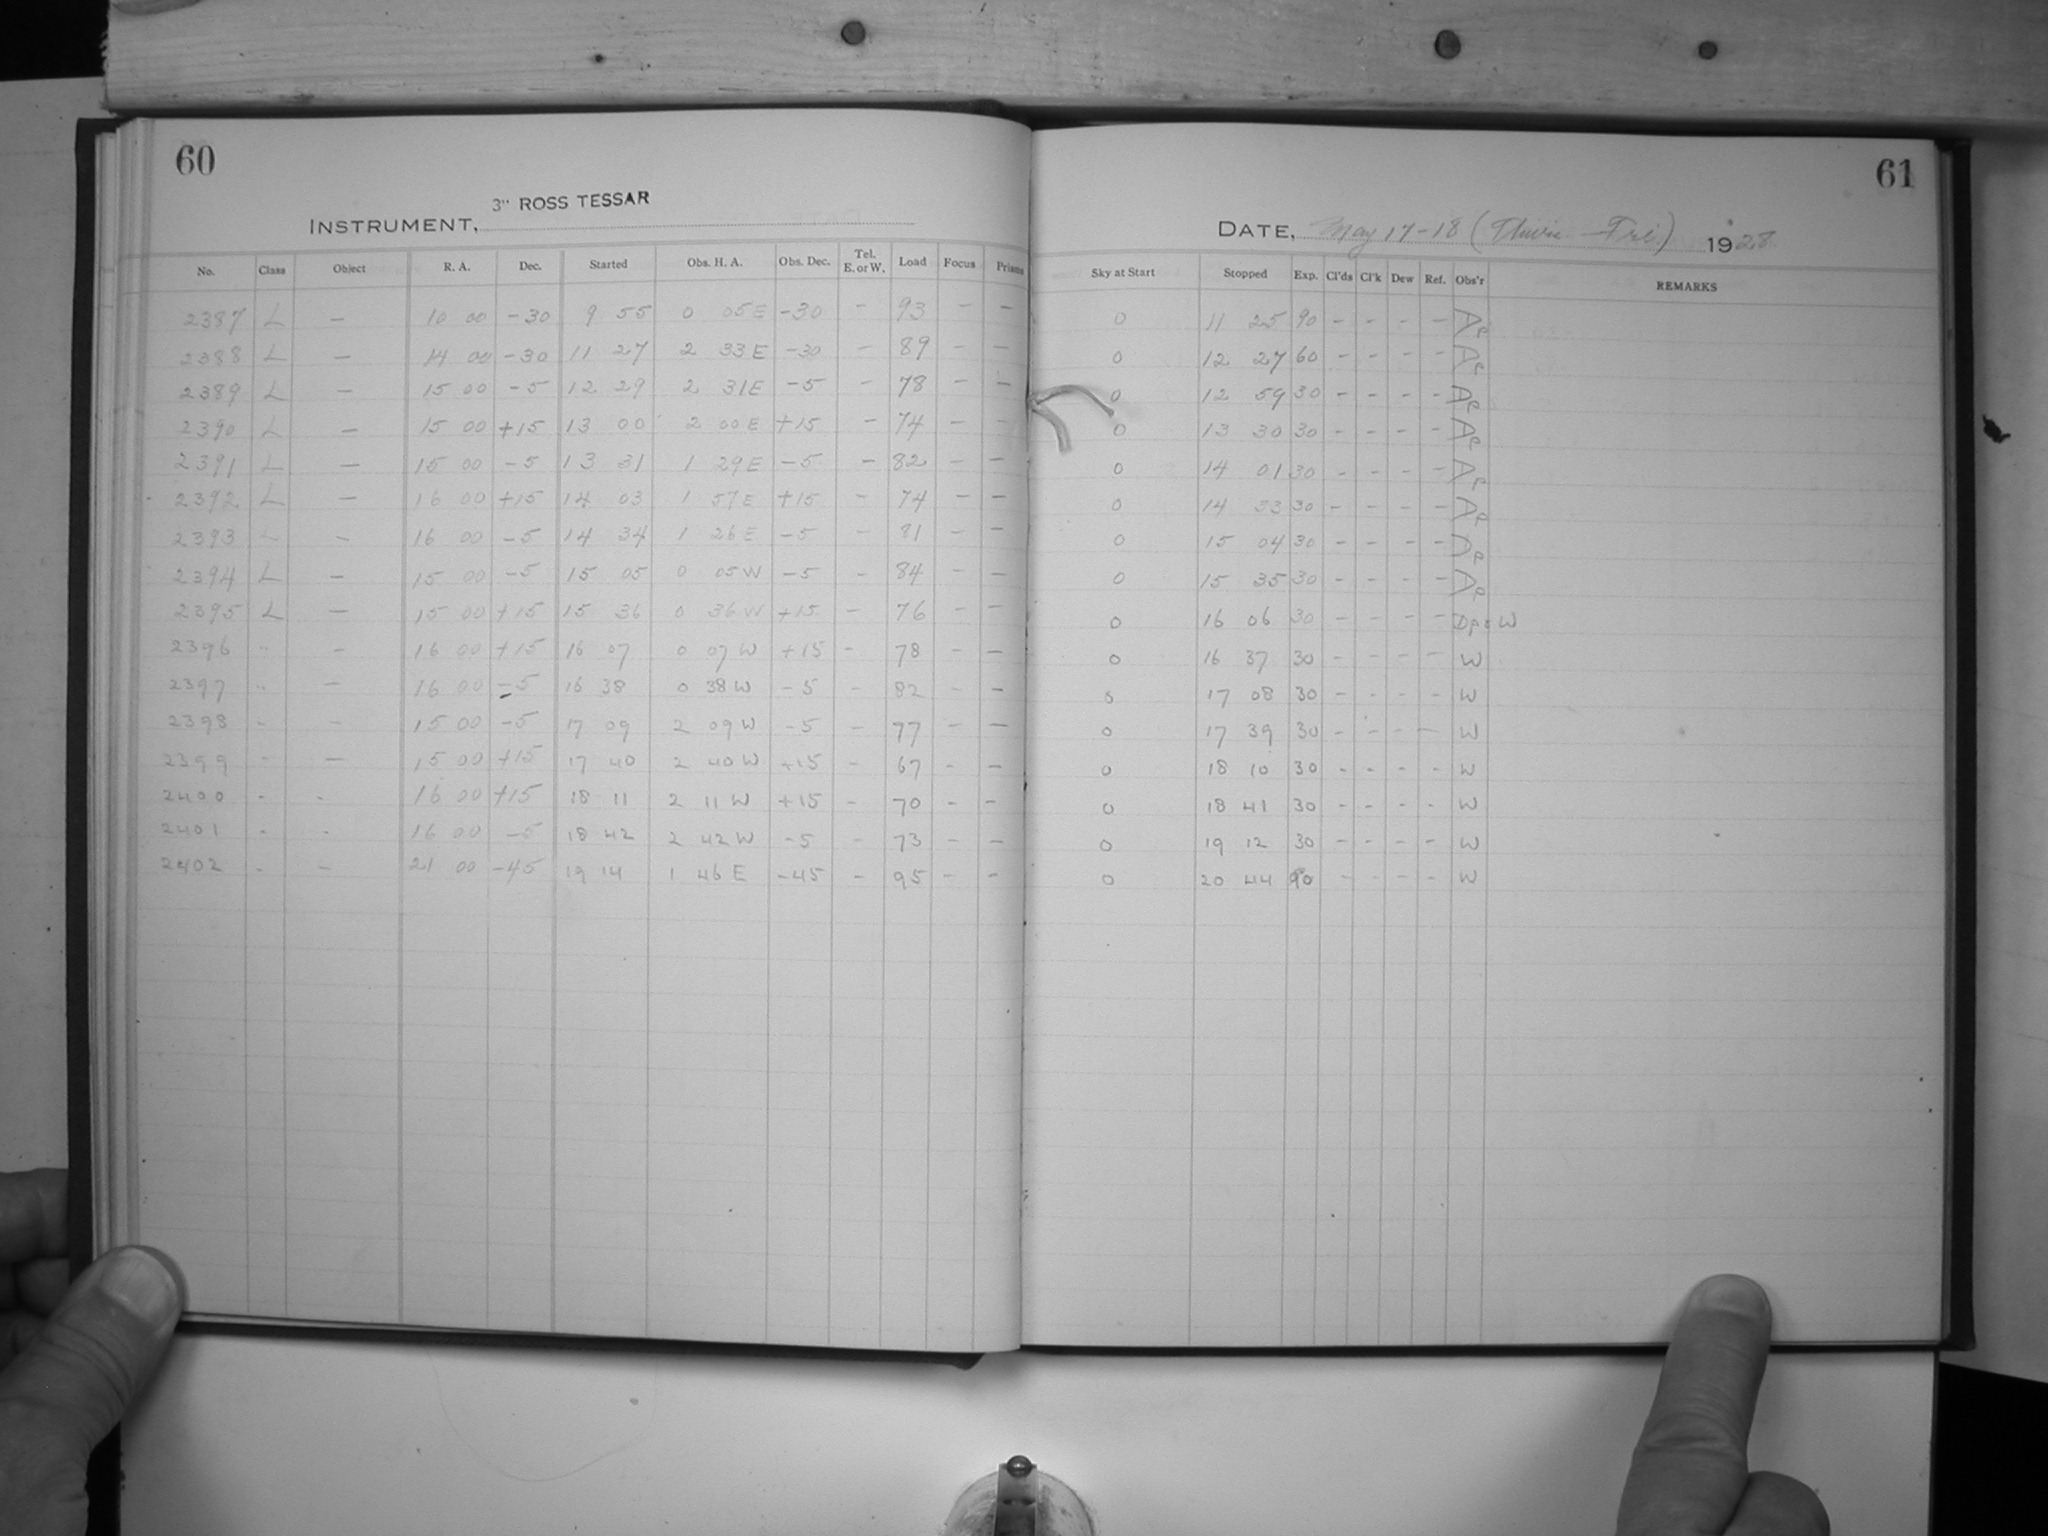 60
3" ROSS TESSAR
INSTRUMENT,
No. Class Object R. A. Dec. Started Obs. H. A. Obs. Dec. Tel. E. or W. Load Focus Prisms
2387 L — 10 00 -30 9 55 0 05 E -30 - 93 - -
2388 L — 14 00 -30 11 27 2 33 E -30 - 89 - -
2389 L — 15 00 -5 12 29 2 31 E -5 - 78 - -
2390 L — 15 00 +15 13 00 2 00 E +15 - 74 - -
2391 L — 15 00 -5 13 31 1 29 E -5 - 82 - -
2392 L — 16 00 +15 14 03 1 57 E +15 - 74 - -
2393 L - 16 00 -5 14 34 1 26 E -5 - 81 - -
2394 L — 15 00 -5 15 05 0 05 W -5 - 84 - -
2395 L — 15 00 +15 15 36 0 36 W +15 - 76 - -
2396 " - 16 00 +15 16 07 0 07 W +15 - 78 - -
2397 " — 16 00 -5 16 38 0 38 W -5 - 82 - -
2398 - - 15 00 -5 17 09 2 09 W -5 - 77 - -
2399 - — 15 00 +15 17 40 2 40 W +15 - 67 - -
2400 - - 16 00 +15 18 11 2 11 W +15 - 70 - -
2401 - - 16 00 -5 18 42 2 42 W -5 - 73 - -
2402 - - 21 00 -45 19 14 1 46 E -45 - 95 - -
61
DATE, May 17-18 (Thur. - Fri.) 1928
Sky at Start Stopped Exp. Cl'ds Cl'k Dew Ref. Obs'r REMARKS
0 11 25 90 - - - - Ae
0 12 27 60 - - - - Ae
0 12 59 30 - - - - Ae
0 13 30 30 - - - - Ae
0 14 01 30 - - - - Ae
0 14 33 30 - - - - Ae
0 15 04 30 - - - - Ae
0 15 35 30 - - - - Ae
0 16 06 30 - - - - W
0 16 37 30 - - - - W
17 08 30 - - - - W
0 17 39 30 - - - - W
0 18 10 30 - - - - W
0 18 41 30 - - - - W
0 19 12 30 - - - - W
0 20 44 90 - - - - W